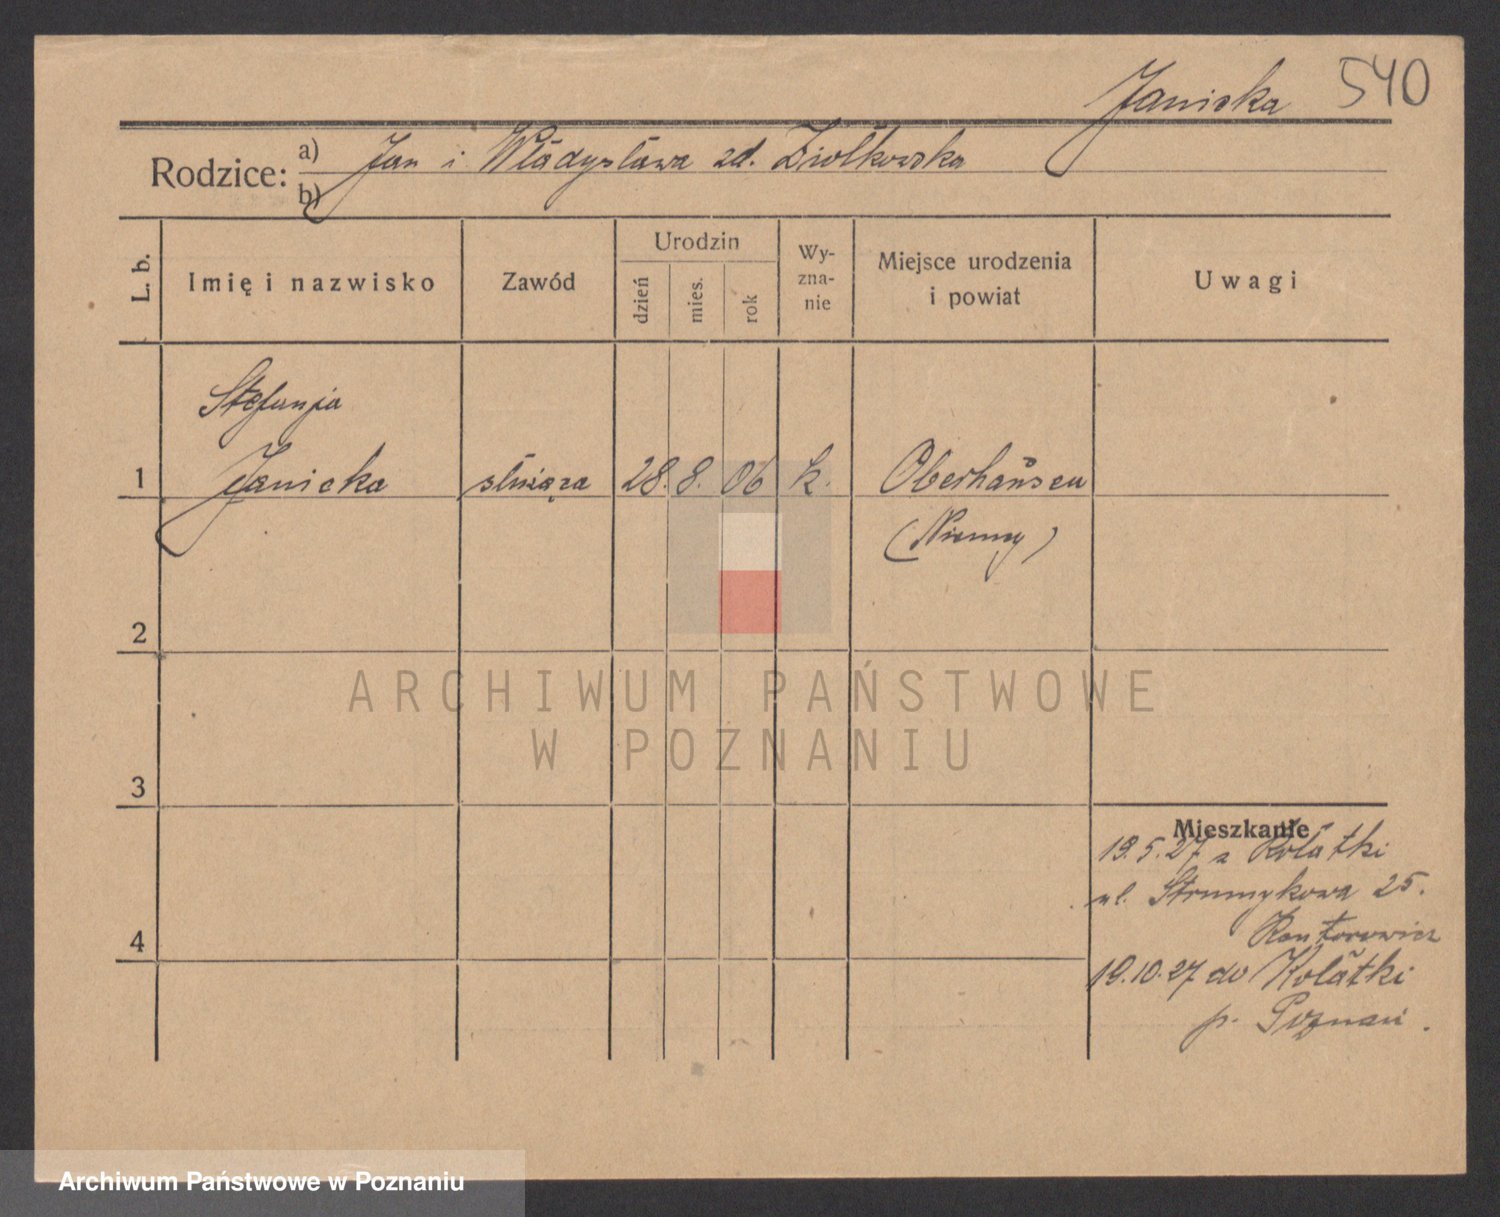 Janicka 540
Rodzice: a) Jan i Władysława zd. Ziółkowska
b)
L. b. Imię i nazwisko Zawód Urodzin dzień mies. rok Wy-zna-nie Miejsce urodzenia i powiat Uwagi
Stefanja
1 Janicka służąca 28. 8. 06 k. Oberhausen
(Niemcy)
2
ARCHIWUM PAŃSTWOWE
W POZNANIU
3
Mieszkanie
19.5.27 z Kołatki
ul. Strumykowa 25.
Kantorowicz
4
19.10.27 do Kołatki
p. Poznań.
Archiwum Państwowe w Poznaniu